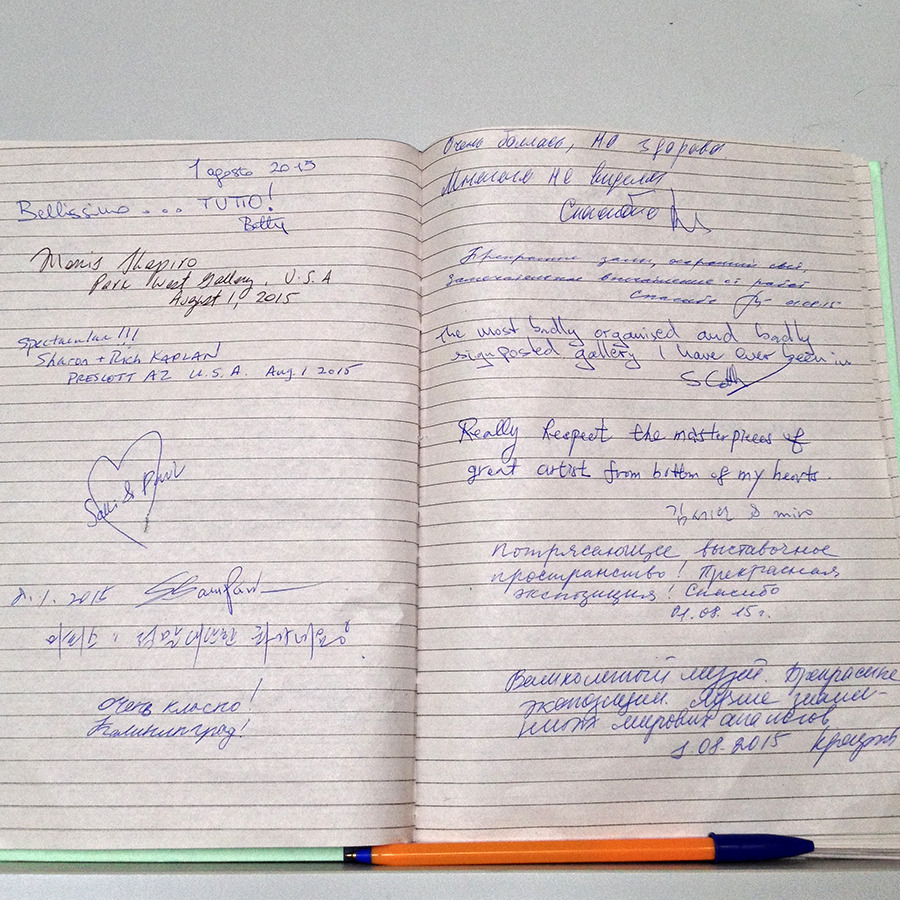 1 agosto 2015
Bellissimo . . . TUTTO!
Betty
Morris Shapiro
Park West Gallery, U.S.A
August 1, 2015
Spectacular!!!
Sharon + Rich KAPLAN
PRESCOTT AZ U.S.A. Aug. 1 2015
&
8. 1. 2015
마티스 : 정말 대단한 화가네요
Очень классно!
Калининград!
Очень
но здорово
Многого не видела
Спасибо
Прекрасные залы,
свет,
впечатление от работ
Спасибо
01.08.15
The most badly organised and badly
signposted gallery I have ever been in
Really Respect the masterpieces of
great artist from bottm of my hearts.
& miro
Потрясающее выставочное
пространство! Прекрасная
экспозиция! Спасибо
01.08.15 г.
Великолепный музей. Прекрасные
экспозиции. Лучшие знаме-
нитых мировых
1.08.2015